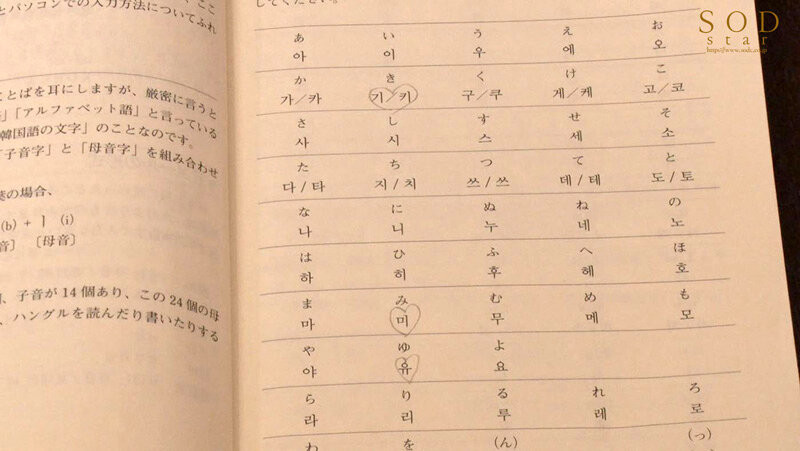 とパソコンでの入力方法についてふれ
ことばを耳にしますが、厳密に言うと
」「アルファベット語」と言っている
韓国語の文字」のことなのです。
「子音字」と「母音字」を組み合わせ
の場合、
(b) + ㅣ (i)
音〕 〔母音〕
、子音が14個あり、この24個の母
、ハングルを読んだり書いたりする
してください。
あ い う え お
아 이 우 에 오
か き く け こ
가/카 기/키 구/쿠 게/케 고/코
さ し す せ そ
사 시 스 세 소
た ち つ て と
다/타 지/치 쓰/쓰 데/테 도/토
な に ぬ ね の
나 니 누 네 노
は ひ ふ へ ほ
하 히 후 헤 호
ま み む め も
마 미 무 메 모
や ゆ よ
야 유 요
ら り る れ ろ
라 리 루 레 로
わ を (ん) (っ)
SOD
star
https://www.sod.co.jp